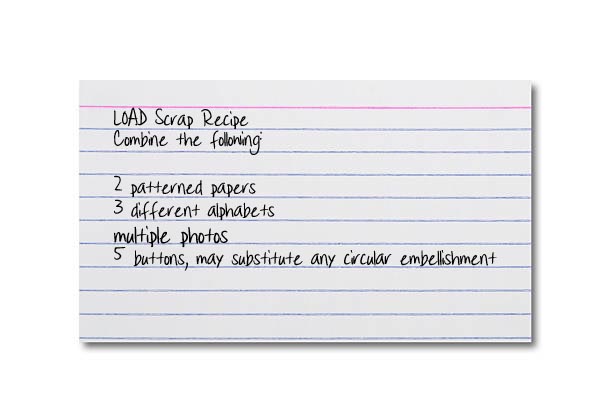 LOAD Scrap Recipe
Combine the following:
2 patterned papers
3 different alphabets
multiple photos
5 buttons, may substitute any circular embellishment